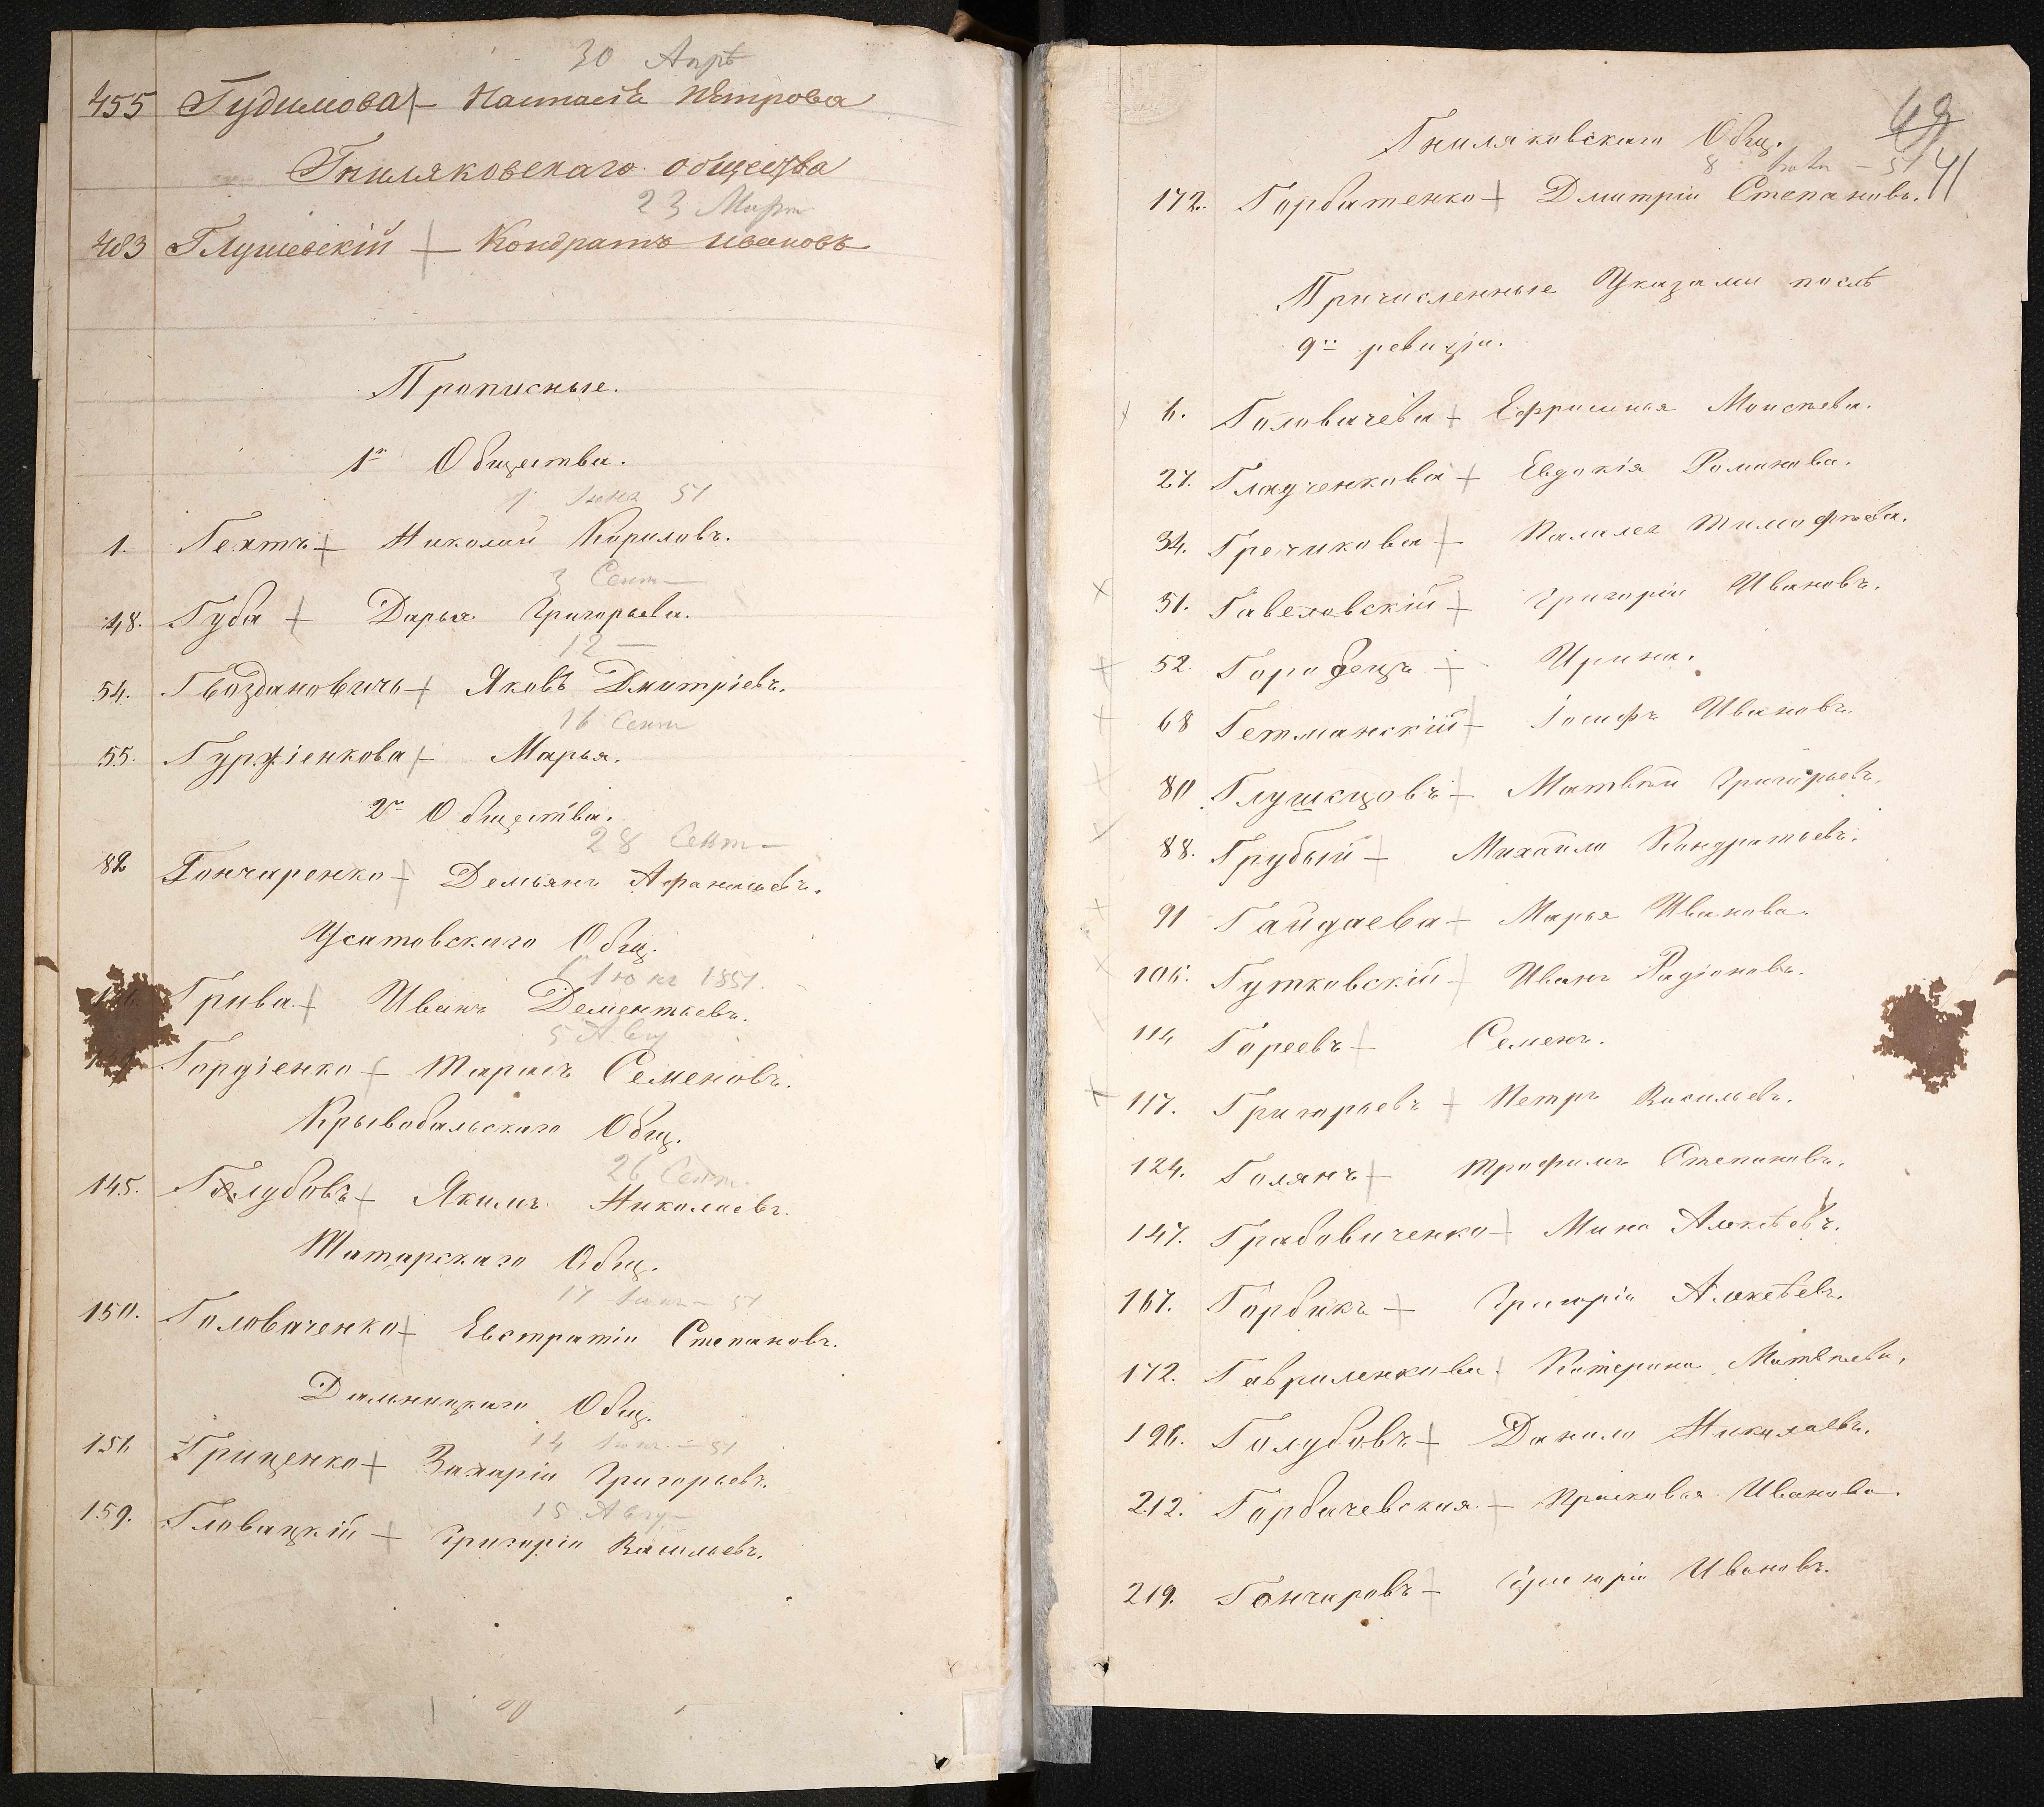 30 Апрѣ
455 Гудимова — Настасія Петрова
Гниляковскаго общества
23 Мар
483 Глушевскій — Кондратъ Ивановъ
Прописные.
1го Общества.
Іюня 51
1. Гехтъ — Николай Кориловъ.
3 Сент —
48. Губа — Дарья Григорьева.
12 —
54. Гвоздановичъ — Яковъ Дмитріевъ.
16 Сент
55. Гуржіенкова — Марья.
2го Общества.
28 Сент —
82 Гончаренко — Демьянъ Афанасьевъ.
Усатовскаго Общ.
Іюня 1851.
Грива — Иванъ Дементьевъ.
5 Авгу
Гордіенко — Тарасъ Семеновъ.
Кривобальскаго Общ.
26 Сент.
145. Голубовъ — Якимъ Николаевъ.
Татарскаго Общ.
17 51
150. Головаченко — Евстратій Степановъ.
Дальницкаго Общ.
14 51
151. Гриценко — Захарій Григорьевъ.
15 Авгу —
159. Гловацкій — Григорій Васильевъ.
69
Гниляковскаго Общ.
8 — 51 41
172. Горбатенко — Дмитрій Степановъ.
Причисленные Указами послѣ
9й ревизіи.
6. Головачева — Ефросинья Моисеева.
27. Гладченкова — Евдокія Романова.
34. Гречикова — Тимофѣева.
51. Гавеловскій — Григорій Ивановъ.
52. Горобецъ — Ирина.
68 Гетманскій — Іосифъ Ивановъ.
80 Глушецовъ — Матвѣй Григорьевъ.
88. Грубый — Михайло Кондратьевъ.
91 Гайдаева — Марья Иванова.
106. Гутковскій — Иванъ Радіоновъ.
114 Гореевъ — Семенъ.
117. Григорьевъ — Петръ Васильевъ.
124. Голянъ — Трофимъ Степановъ.
147. Грабовиченко — Мина Алексѣевъ.
167. Горбикъ — Григорій Алексѣевъ.
172. Гавриленкова — Катерина Матвѣева.
196. Голубовъ — Данило Николаевъ.
212. Горбачевская — Прасковья Иванова.
219. Гончаровъ — Григорій Ивановъ.